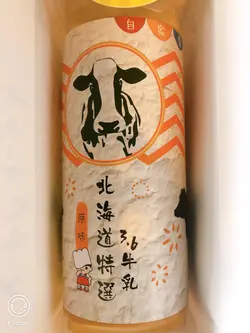 自
北海道特選
3.6牛乳
原味